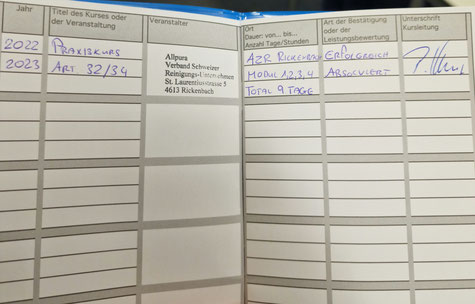 Jahr
Titel des Kurses oder
der Veranstaltung
Veranstalter
Ort
Dauer: von... bis...
Anzahl Tage/Stunden
Art der Bestätigung
oder der
Leistungsbewertung
Unterschrift
Kursleitung
2022 PRAXISKURS
2023 ART 32/34
Allpura
Verband Schweizer
Reinigungs-Unternehmen
St. Laurentiusstrasse 5
4613 Rickenbach
AZR RICKENBACH ERFOLGREICH
MODUL 1,2,3,4 ABSOLVIERT
TOTAL 9 TAGE